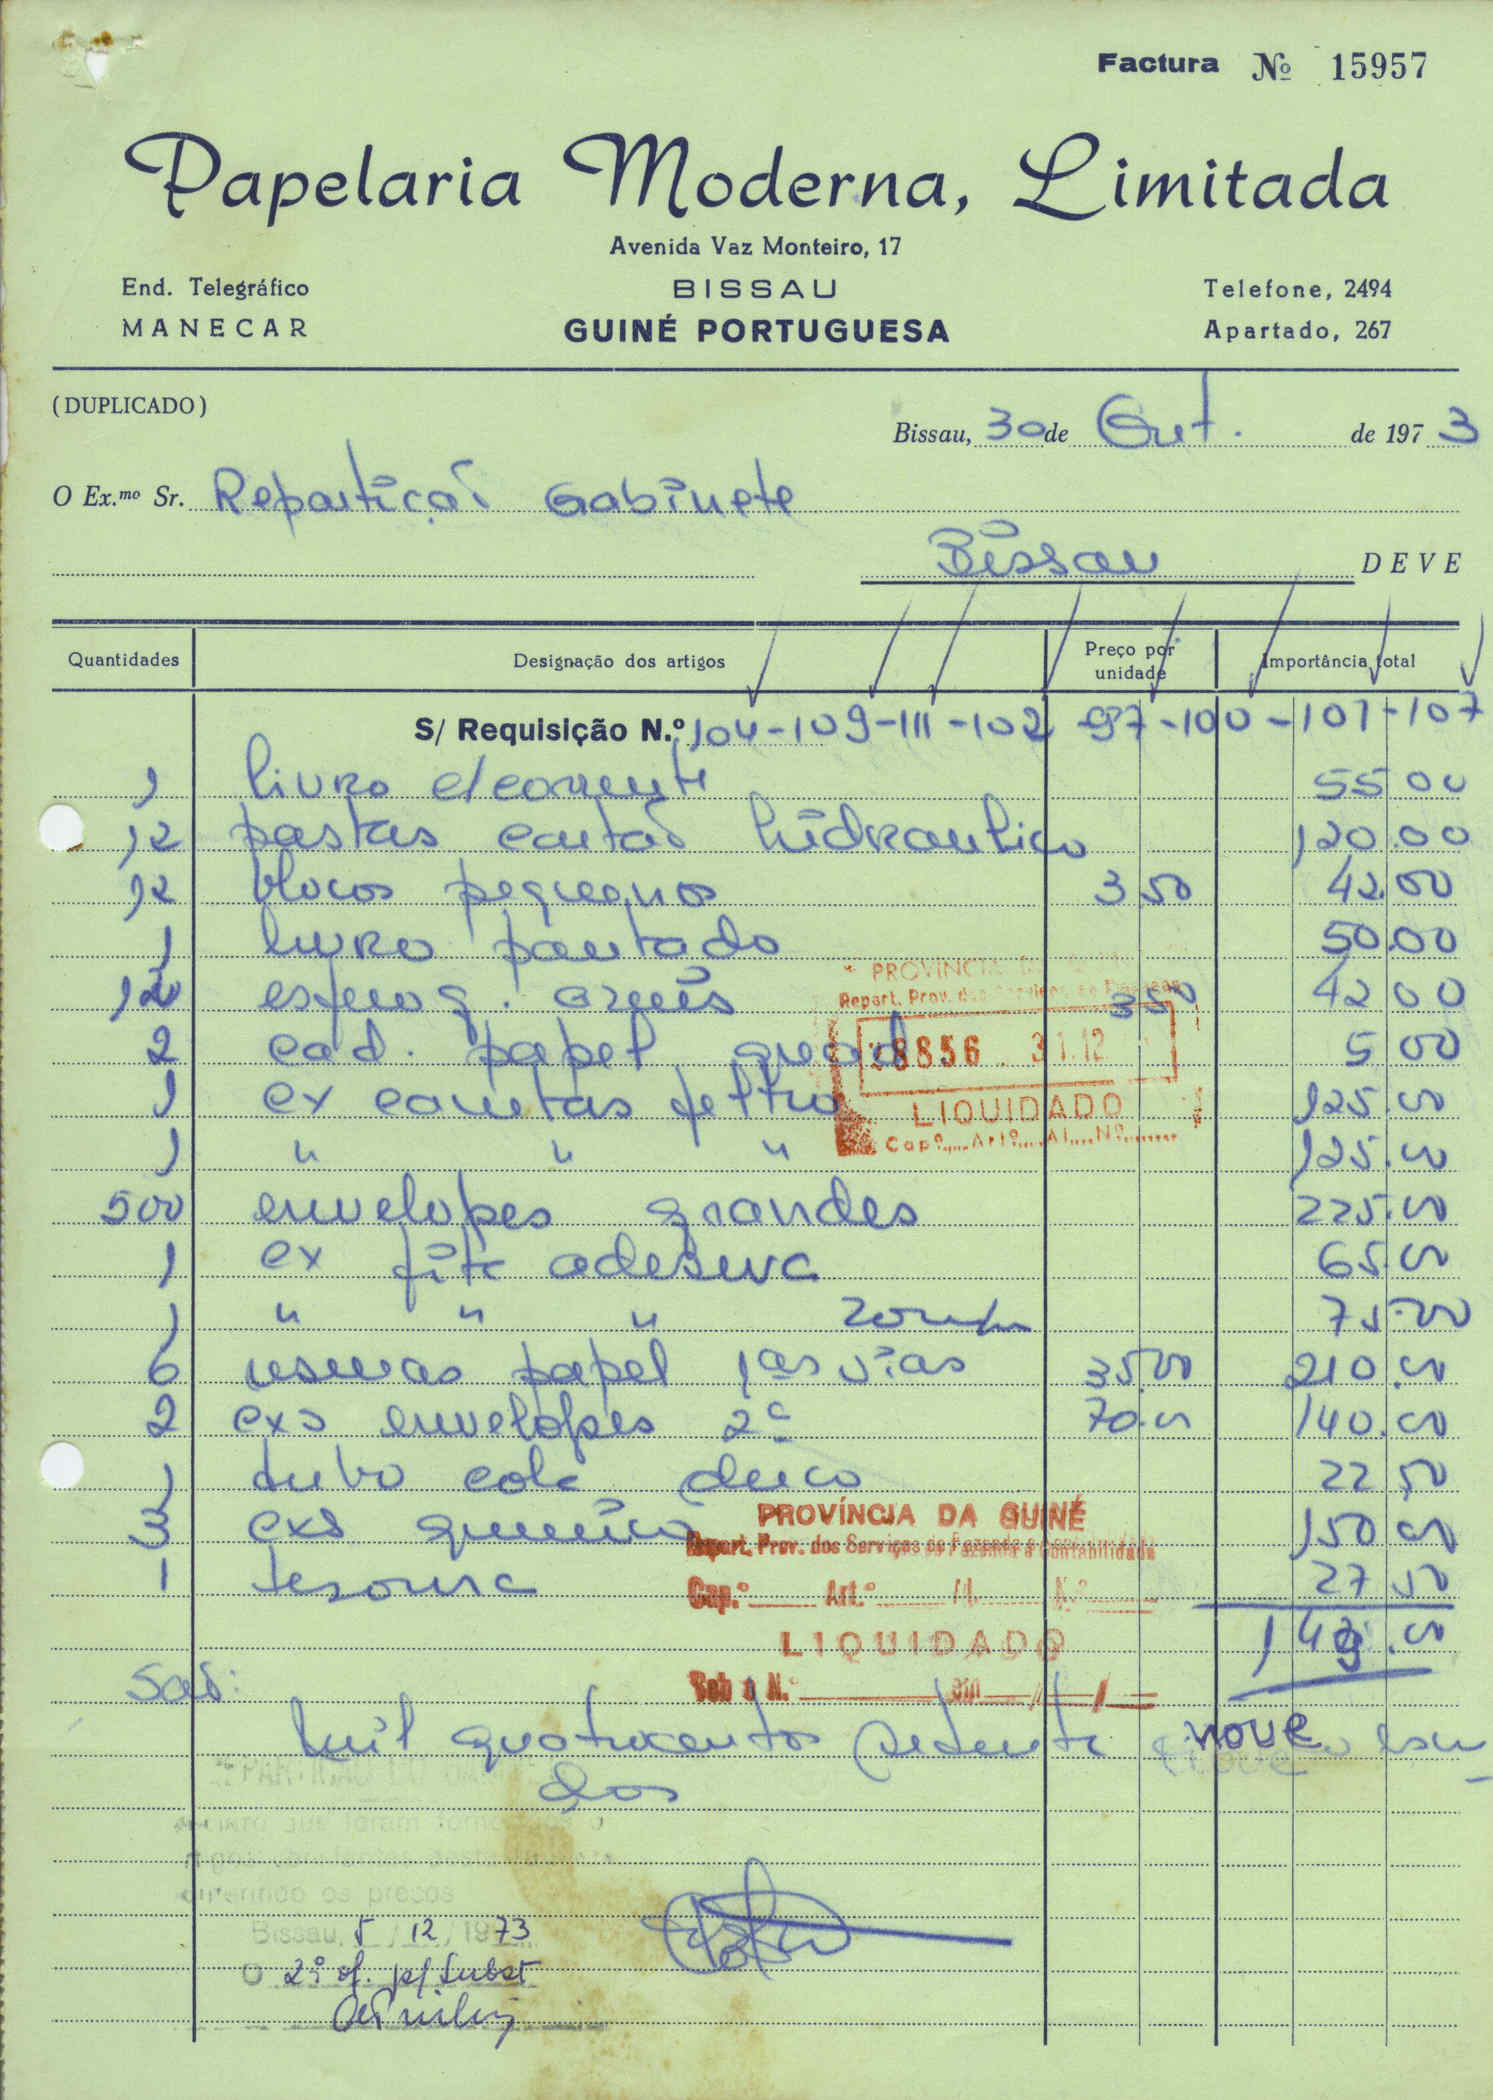 Factura Nº 15957
Papelaria Moderna, Limitada
Avenida Vaz Monteiro, 17
End. Telegráfico BISSAU Telefone, 2494
MANECAR GUINÉ PORTUGUESA Apartado, 267
(DUPLICADO)
Bissau, 30 de Out. de 1973
O Ex.mo Sr. Repartição Gabinete
Bissau DEVE
Quantidades Designação dos artigos Preço por unidade Importância total
S/ Requisição N.º 104-109-111-102-97-100-101-107
1 livro c/corrente 55 00
12 pastas cartão hidraulico 120.00
12 blocos pequenos 3 50 42.00
1 livro pautado 50.00
esferog. 3 50 42 00
2 cad. papel 5 00
1 cx canetas feltro 125.00
1 " " " 125.00
500 envelopes grandes 225.00
1 cx fita adesiva 65.00
1 " " " 75.00
6 resmas papel 1as vias 35.00 210.00
2 cxs envelopes 2ª 70.00 140.00
1 tubo cola 22 50
3 cxs 150 00
1 tesoura 27 50
1 479.00
São:
mil quatrocentos setenta nove escu
dos
PROVÍNCIA
Repart. Prov. dos Serviços de Finanças
8856 31.12
LIQUIDADO
Cap.º Art.º Al. Nº
PROVÍNCIA DA GUINÉ
Repart. Prov. dos Serviços de Fazenda e Contabilidade
Cap.º Art.º Al. N.º
LIQUIDADO
Sob o N.º em / /
que foram
os preços
Bissau, 5/12/1973
O 2º of. p/ Subst